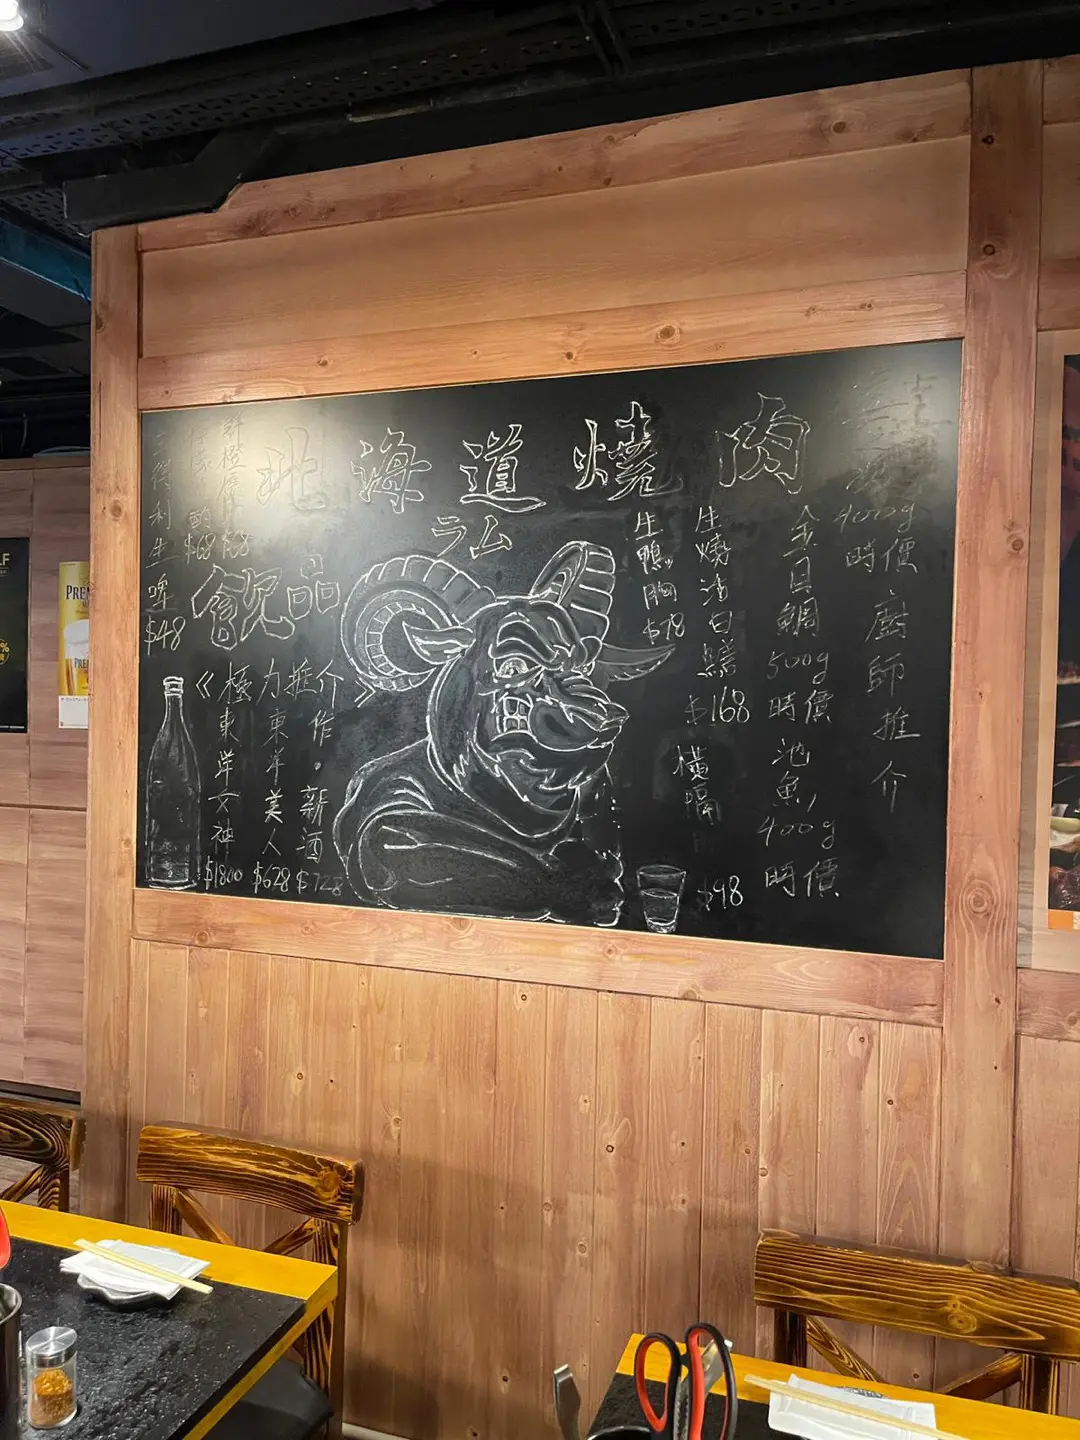 北海道燒肉
ラム
廚師推介
400g
時價
金目鯛
500g
時價
池魚
400g
時價
生燒汁白鱔
$168
橫隔
$98
生鴨胸
$78
飲品
鮮橙
$68
$68
三得利生啤
$48
《極力推介》
作。新酒
$728
東洋美人
$628
極東洋女神
$1800
PREM
PREM